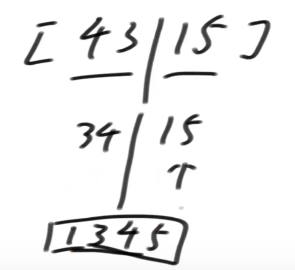 [ 43 | 15 ]
34 | 15
↑
1345